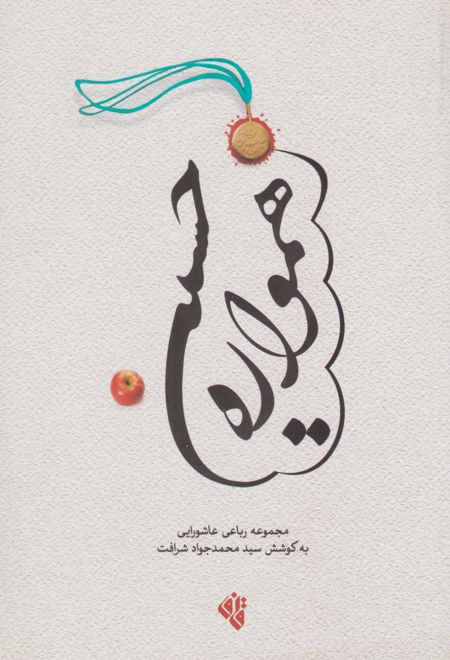 همواره
حسین
مجموعه رباعی عاشورایی
به کوشش سید محمدجواد شرافت